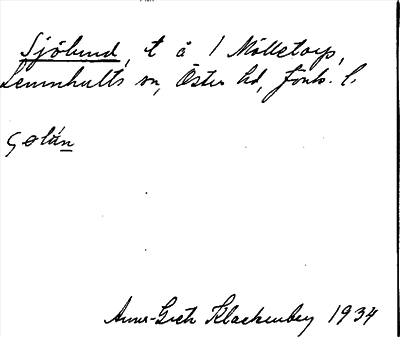 Sjölund, t å 1 Mölletorp,
Lemnhults sn, Öster hd, Jönk. l.
ꞔolán
Anna-Greta Klackenberg 1934